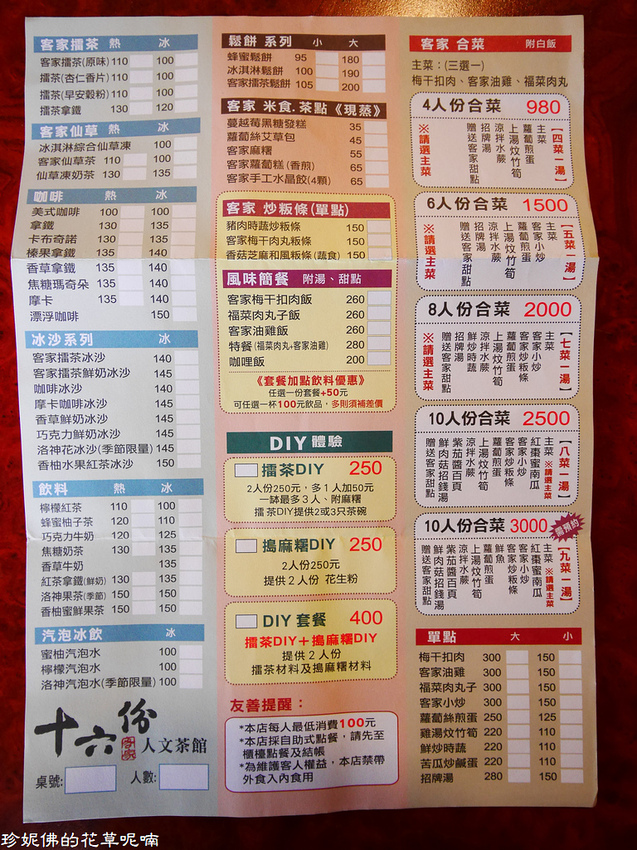 客家擂茶 熱 冰
客家擂茶(原味) 110 110
擂茶(杏仁香片) 110 110
擂茶(早安穀粉) 110 110
擂茶拿鐵 130 120
客家仙草 熱 冰
冰淇淋綜合仙草凍 100
客家仙草茶 110 100
仙草凍奶茶 135 130
咖啡 熱 冰
美式咖啡 100 100
拿鐵 135 135
卡布奇諾 130 130
榛果拿鐵 135 140
香草拿鐵 135 140
焦糖瑪奇朵 135 140
摩卡 135 140
漂浮咖啡 150
冰沙系列 冰
客家擂茶冰沙 140
客家擂茶鮮奶冰沙 145
咖啡冰沙 140
摩卡咖啡冰沙 145
香草鮮奶冰沙 145
巧克力鮮奶冰沙 145
洛神花冰沙(季節限量) 145
香柚水果紅茶冰沙 145
飲料 熱 冰
檸檬紅茶 110 110
蜂蜜柚子茶 120 110
巧克力牛奶 120 120
焦糖奶茶 130 135
香草牛奶 135
紅茶拿鐵(鮮奶) 130 135
洛神果茶(季節) 150 150
香柚蜜鮮果茶 150 150
汽泡冰飲 冰
蜜柚汽泡水 100
檸檬汽泡水 100
洛神汽泡水(季節限量) 100
十六份
客家
人文茶館
桌號: 人數:
鬆餅 系列 小 大
蜂蜜鬆餅 95 180
冰淇淋鬆餅 100 190
客家擂茶鬆餅 105 200
客家 米食.茶點《現蒸》
蔓越莓黑糖發糕 35
蘿蔔絲艾草包 45
客家麻糬 55
客家蘿蔔糕(香煎) 65
客家手工水晶餃(4顆) 65
客家 炒粄條(單點)
豬肉時蔬炒粄條 150
客家梅干肉丸粄條 150
香菇芝麻和風粄條(蔬食) 150
風味簡餐 附湯、甜點
客家梅干扣肉飯 260
福菜肉丸子飯 260
客家油雞飯 260
特餐(福菜肉丸+客家油雞) 280
咖哩飯 200
《套餐加點飲料優惠》
任選一份套餐+50元
可任選一杯100元飲品,多則須補差價
DIY 體驗
擂茶DIY 250
2人份250元,多1人加50元
一缽最多3人、附麻糬
擂茶DIY提供2或3只茶碗
搗麻糬DIY 250
2人份250元
提供2人份 花生粉
DIY 套餐 400
擂茶DIY+搗麻糬DIY
提供 2人份
擂茶材料及搗麻糬材料
友善提醒:
*本店每人最低消費100元
*本店採自助式點餐,請先至
櫃檯點餐及結帳
*為維護客人權益,本店禁帶
外食入內食用
客家 合菜 附白飯
主菜:(三選一)
梅干扣肉、客家油雞、福菜肉丸
4人份合菜 980
【四菜一湯】
主菜
蘿蔔煎蛋
上湯炆竹筍
涼拌水蕨
招牌湯
贈送客家甜點
※請選主菜
6人份合菜 1500
【五菜一湯】
主菜
客家小炒
蘿蔔煎蛋
上湯炆竹筍
涼拌水蕨
招牌湯
贈送客家甜點
※請選主菜
8人份合菜 2000
【七菜一湯】
主菜
客家小炒
客家炒粄條
蘿蔔煎蛋
上湯炆竹筍
涼拌水蕨
鮮炒時蔬
招牌湯
贈送客家甜點
※請選主菜
10人份合菜 2500
【八菜一湯】
主菜 ※請選主菜
紅棗蜜南瓜
客家小炒
客家炒粄條
蘿蔔煎蛋
上湯炆竹筍
涼拌水蕨
紫茄醬百頁
鮮肉菇招錢湯
贈送客家甜點
10人份合菜 3000
需預約
【九菜一湯】
主菜 ※請選主菜
紅棗蜜南瓜
客家小炒
客家炒粄條
鮮魚
蘿蔔煎蛋
上湯炆竹筍
涼拌水蕨
紫茄醬百頁
鮮肉菇招錢湯
贈送客家甜點
單點 大 小
梅干扣肉 300 150
客家油雞 300 150
福菜肉丸子 300 150
客家小炒 300 150
蘿蔔絲煎蛋 250 125
雞湯炆竹筍 220 110
鮮炒時蔬 220 110
苦瓜炒鹹蛋 220 110
招牌湯 280 150
珍妮佛的花草呢喃